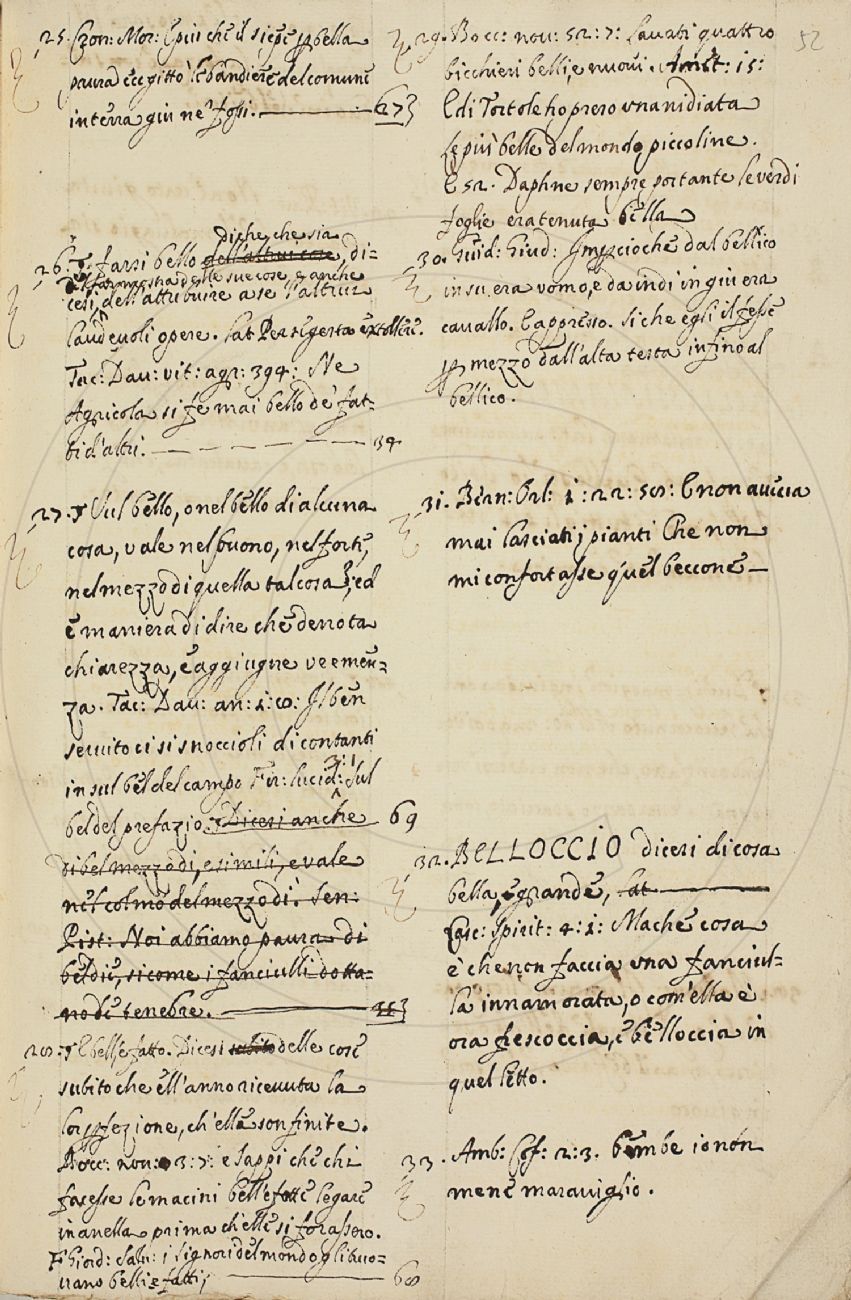 52
25. Cron: Mor: E più che il siepe p bella
paura e e gittò le bandiere del comune
in terra giu ne' fossi. 673
di che che sia
26. § Farsi bello dell'altrui cose, di-
mostra delle sue cose, e anche
cesi, dell'attribuire a se l'altrui
laudevoli opere. Lat. Per se gesta extollere.
Tac: Dav: vit: agr: 394: Ne
Agricola si fe mai bello de' fat-
ti d'altri. 34
27. § Sul bello, o nel bello di alcuna
cosa, vale nel buono, nel forte,
nel mezzo di quella tal cosa, ed
è maniera di dire che denota
chiarezza, e aggiugne veemen-
za. Tac: Dav: an: 1: 8: Il ben
servito ci si snoccioli di contanti
in sul bel del campo Fir: lucid: 3: 1 Sul
bel del prefazio. § Dicesi anche 69
di bel mezzo dì, e simili, e vale
nel colmo del mezzo dì. Sen:
Pist: Noi abbiamo paura di
bel dìe, sicome i fanciulli dotta-
no di tenebre.
28. § E bell'e fatto. Dicesi subito delle cose
subito che ell'anno ricevuta la
lor pfezione, ch'elle son finite.
Bocc: nov: 3: 7: e Sappi che chi
facesse le macini belle fatte legare
in anella prima ch'elle si forassero.
F. Giord: Salv: i signori del mondo gli truo-
vano belli e fatti; 68
29. Bocc: nov: 52: 7: Lavati quattro
bicchieri belli, e nuovi. Amet: 15:
E di Tortole ho preso una nidiata
le più belle del mondo piccoline.
E 52. Daphne sempre portante le verdi
foglie era tenuta bella
30. Guid: Giud: Impercioche dal bellico
in su era vomo, e da indi in giu era
cavallo. E appresso. Si che egli il fesse
p mezzo dall'alta testa infino al
bellico.
31. Bern: Orl: 1: 22: 58: E non avecia
mai lasciati i pianti Che non
mi confortasse quel beccone
32. BELLOCCIO dicesi di cosa
bella, e grande, Lat
Lasc: Spirit: 4: 1: Ma che cosa
è che non faccia una fanciul-
la innamorata, o com'ella è
ora frescoccia, e belloccia in
quel letto.
33. Amb: Cof: 2: 3. bembe io non
mene maraviglio.